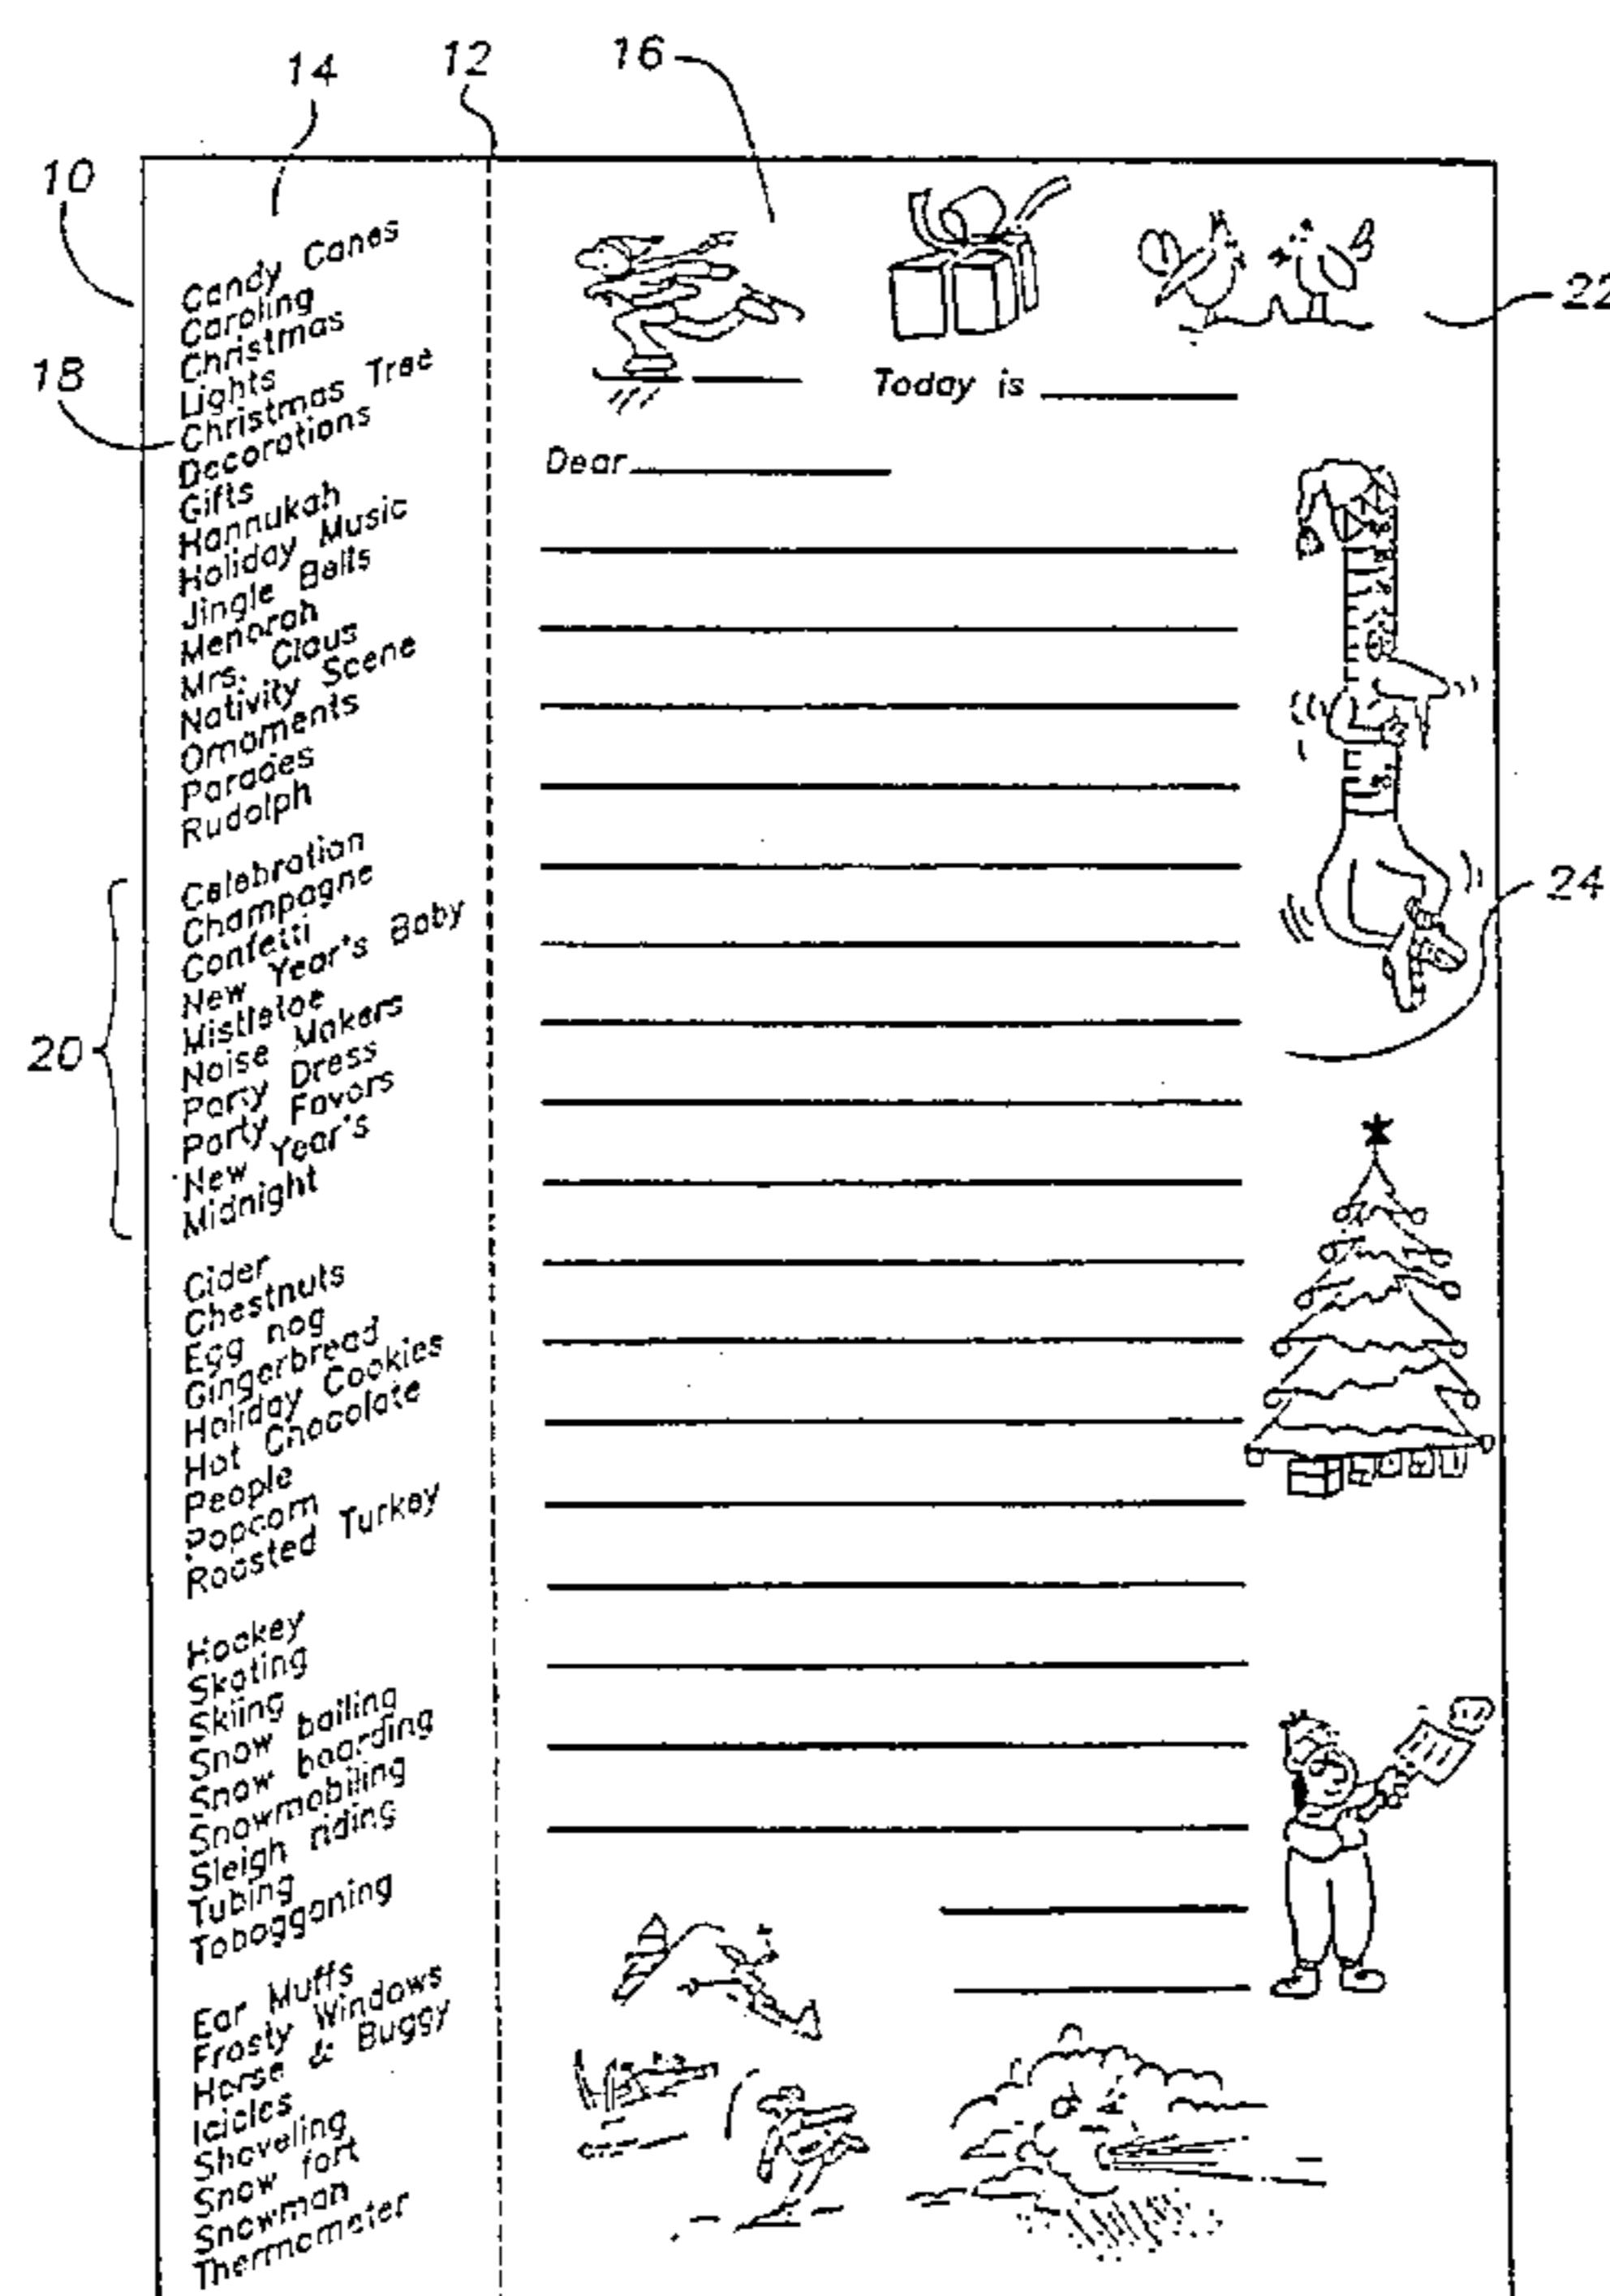 14
12
16
10
22
18
Candy Canes
Caroling
Christmas
Lights
Christmas Tree
Decorations
Gifts
Hannukah
Holiday Music
Jingle Bells
Menorah
Mrs. Claus
Nativity Scene
Ornaments
Parades
Rudolph
20
Celebration
Champagne
Confetti
New Year's Baby
Mistletoe
Noise Makers
Party Dress
Party Favors
New Year's
Midnight
Cider
Chestnuts
Egg nog
Gingerbread
Holiday Cookies
Hot Chocolate
People
Popcorn
Roasted Turkey
Hockey
Skating
Skiing
Snow balling
Snow boarding
Snowmobiling
Sleigh riding
Tubing
Tobogganing
Ear Muffs
Frosty Windows
Horse & Buggy
Icicles
Shoveling
Snow fort
Snowman
Thermometer
Today is
Dear
24